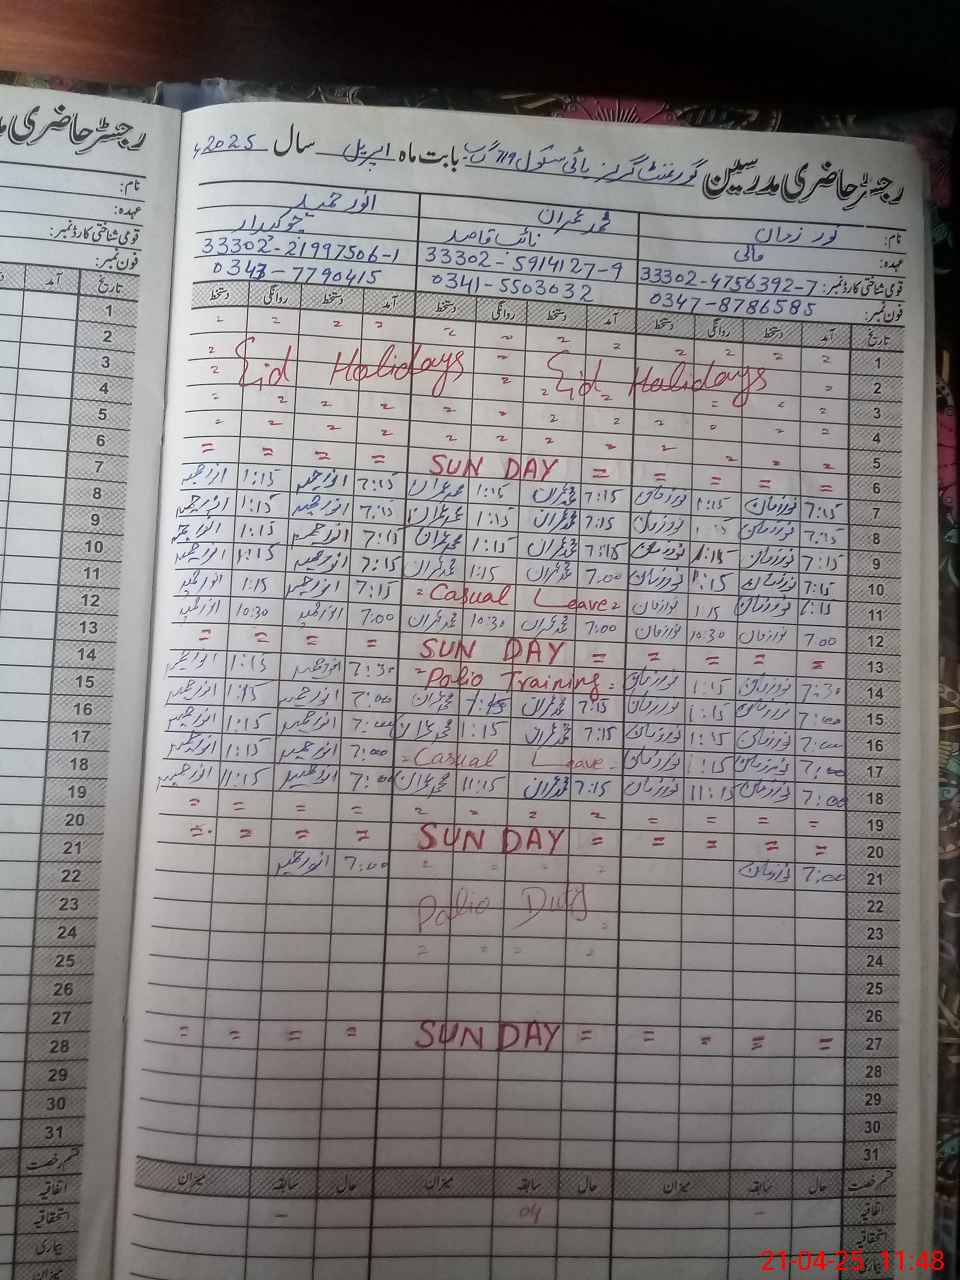 رجسٹر حاضری مدرسین گورنمنٹ گرلز ہائی سکول 719 گ ب بابت ماہ اپریل سال 2025ء
نام: نور زمان محمد عمران انور حمید
عہدہ: مالی نائب قاصد چوکیدار
قومی شناختی کارڈ نمبر: 33302-4756392-7 33302-5914127-9 33302-21997506-1
فون نمبر: 0347-8786585 0341-5503032 0343-7790415
تاریخ آمد دستخط روانگی دستخط آمد دستخط روانگی دستخط آمد دستخط روانگی دستخط
1
2 Eid Holidays Eid Holidays
3
4
5
6 = = = = SUN DAY = = = =
7 7:15 نور زمان 1:15 نور زمان 7:15 محمد عمران 1:15 محمد عمران 7:15 انور حمید 1:15 انور حمید
8 7:15 نور زمان 1:15 نور زمان 7:15 محمد عمران 1:15 محمد عمران 7:15 انور حمید 1:15 انور حمید
9 7:15 نور زمان 1:15 نور زمان 7:15 محمد عمران 1:15 محمد عمران 7:15 انور حمید 1:15 انور حمید
10 7:15 نور زمان 1:15 نور زمان 7:00 محمد عمران 1:15 محمد عمران 7:15 انور حمید 1:15 انور حمید
11 7:15 نور زمان 1:15 نور زمان = Casual Leave = 7:15 انور حمید 1:15 انور حمید
12 7:00 نور زمان 10:30 نور زمان 7:00 محمد عمران 10:30 محمد عمران 7:00 انور حمید 10:30 انور حمید
13 = = = = SUN DAY = = = =
14 7:30 نور زمان 1:15 نور زمان = Polio Training = 7:30 انور حمید 1:15 انور حمید
15 7:00 نور زمان 1:15 نور زمان 7:15 محمد عمران محمد عمران 7:00 انور حمید 1:15 انور حمید
16 7:00 نور زمان 1:15 نور زمان 7:15 محمد عمران 1:15 محمد عمران 7:00 انور حمید 1:15 انور حمید
17 7:00 نور زمان 1:15 نور زمان = Casual Leave = 7:00 انور حمید 1:15 انور حمید
18 7:00 نور زمان 11:15 نور زمان 7:15 محمد عمران 11:15 محمد عمران 7:00 انور حمید 11:15 انور حمید
19 = = = = = = = =
20 = = = = SUN DAY = = = =
21 7:00 نور زمان 7:00 انور حمید
22 Polio Duty
23
24
25
26
27 = = = = SUN DAY = = = =
28
29
30
31
قسم رخصت حال سابقہ میزان حال سابقہ میزان حال سابقہ میزان
اتفاقیہ - 04 -
استحقاقیہ
بیماری
رجسٹر حاضری مد
نام:
عہدہ:
قومی شناختی کارڈ نمبر:
فون نمبر:
تاریخ آمد
1
2
3
4
5
6
7
8
9
10
11
12
13
14
15
16
17
18
19
20
21
22
23
24
25
26
27
28
29
30
31
قسم رخصت
اتفاقیہ
استحقاقیہ
بیماری
میزان
21-04-25 11:48